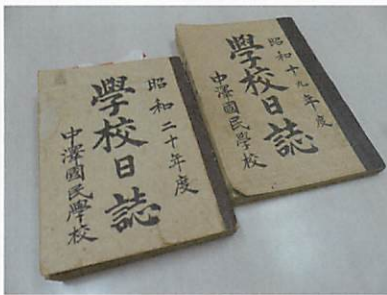 昭和二十年度
學校日誌
中澤國民學校
昭和十九年度
學校日誌
中澤國民學校